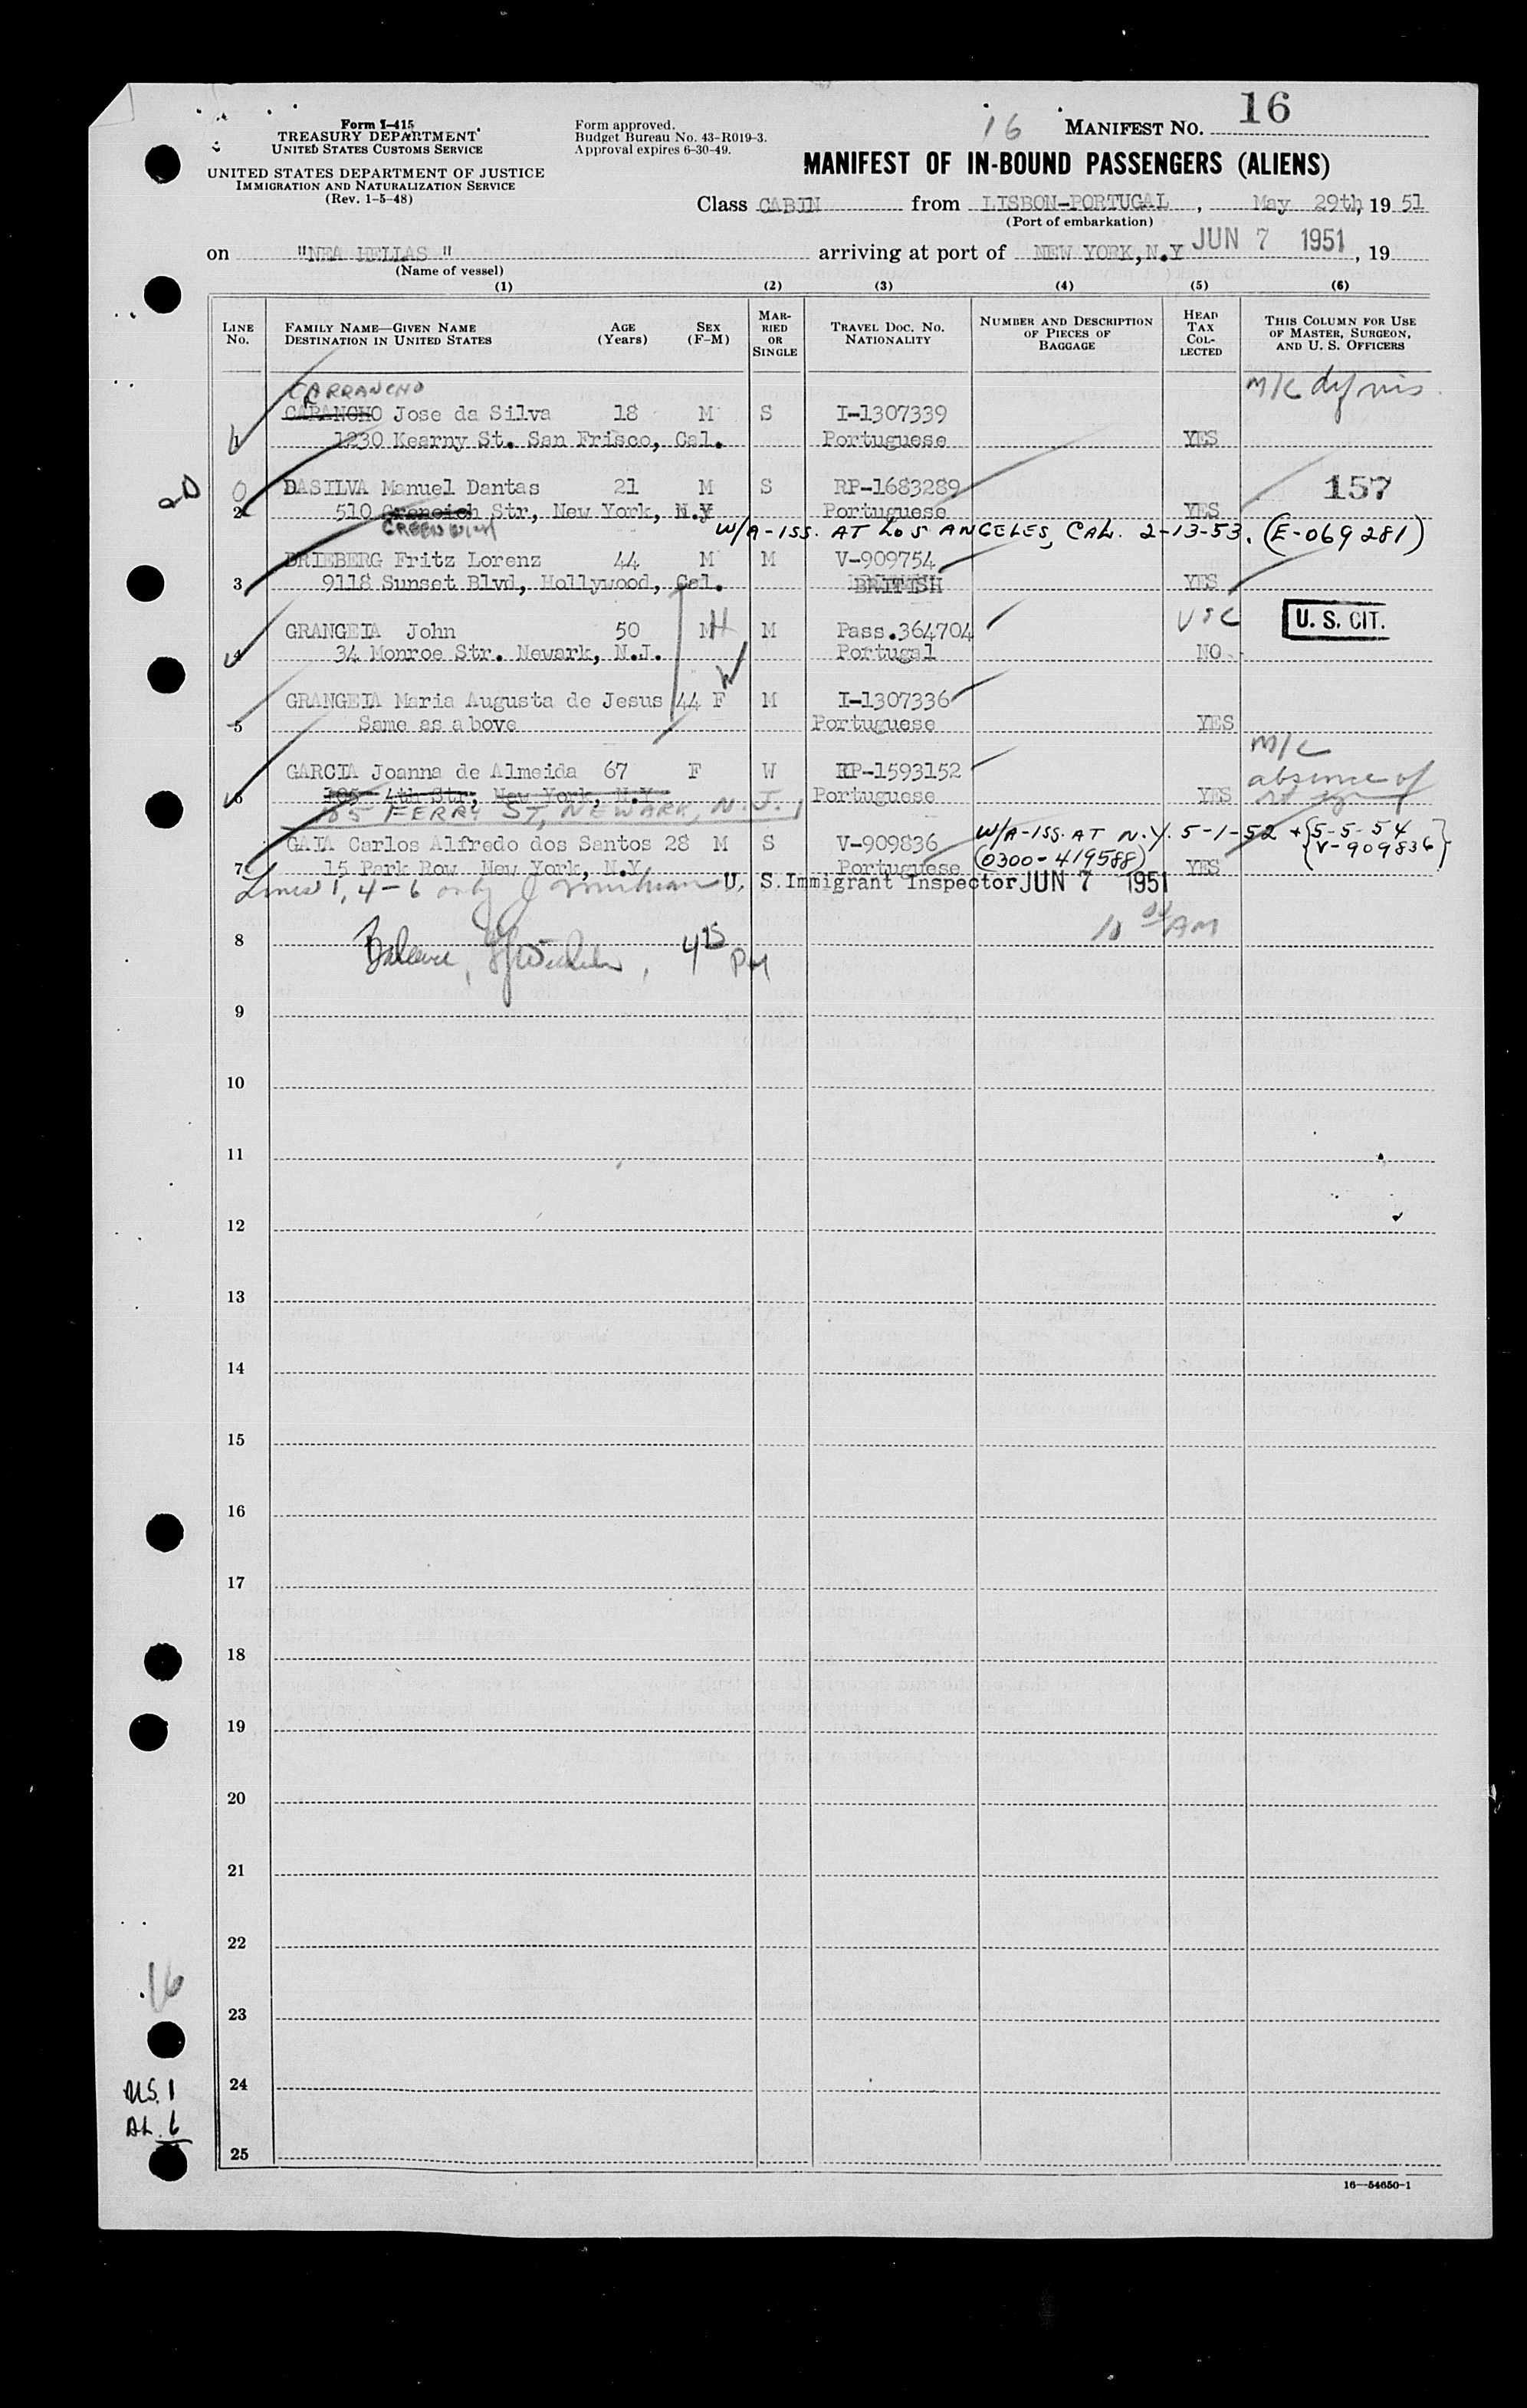 16 MANIFEST NO. 16
Form I-415
TREASURY DEPARTMENT
UNITED STATES CUSTOMS SERVICE
UNITED STATES DEPARTMENT OF JUSTICE
IMMIGRATION AND NATURALIZATION SERVICE
(Rev. 1-5-48)
Form approved.
Budget Bureau No. 43-R019-3.
Approval expires 6-30-49.
MANIFEST OF IN-BOUND PASSENGERS (ALIENS)
Class CABIN from LISBON-PORTUGAL , May 29th, 19 51
(Port of embarkation)
on "NEA HELLAS " arriving at port of NEW YORK, N.Y JUN 7 1951, 19
(Name of vessel)
(1) (2) (3) (4) (5) (6)
LINE No. FAMILY NAME—GIVEN NAME DESTINATION IN UNITED STATES AGE (Years) SEX (F-M) MARRIED OR SINGLE TRAVEL DOC. NO. NATIONALITY NUMBER AND DESCRIPTION OF PIECES OF BAGGAGE HEAD TAX COLLECTED THIS COLUMN FOR USE OF MASTER, SURGEON, AND U. S. OFFICERS
CARRANCHO M/C
CARANCHO Jose da Silva 18 M S I-1307339
1 1230 Kearny St. San Frisco, Cal. Portuguese YES
DASILVA Manuel Dantas 21 M S RP-1683289 157
2 510 Greneich Str, New York, N.Y Portuguese YES
GREENWICH W/A-ISS. AT LOS ANGELES, CAL. 2-13-53. (E-069281)
DRIEBERG Fritz Lorenz 44 M M V-909754
3 9118 Sunset Blvd, Hollywood, Cal. BRITISH YES
GRANGEIA John 50 M H M Pass.364704 USC U. S. CIT.
4 34 Monroe Str. Newark, N.J. Portugal NO
W
GRANGEIA Maria Augusta de Jesus 44 F M I-1307336
5 Same as above Portuguese YES
M/C
GARCIA Joanna de Almeida 67 F W RP-1593152 absence of
6 105 4th Str, New York, N.Y. Portuguese YES
105 FERRY ST, NEWARK, N.J.
W/A-ISS. AT N.Y. 5-1-52 + {5-5-54
GAIA Carlos Alfredo dos Santos 28 M S V-909836 (0300-419588) V-909836}
7 15 Park Row New York, N.Y. Portuguese YES
Lines 1, 4-6 only U. S. Immigrant Inspector JUN 7 1951
10 AM
8 Balance, 4 15 PM
9
10
11
12
13
14
15
16
17
18
19
20
21
22
23
24
25
16
U.S. 1
AL. 6
16—54650-1